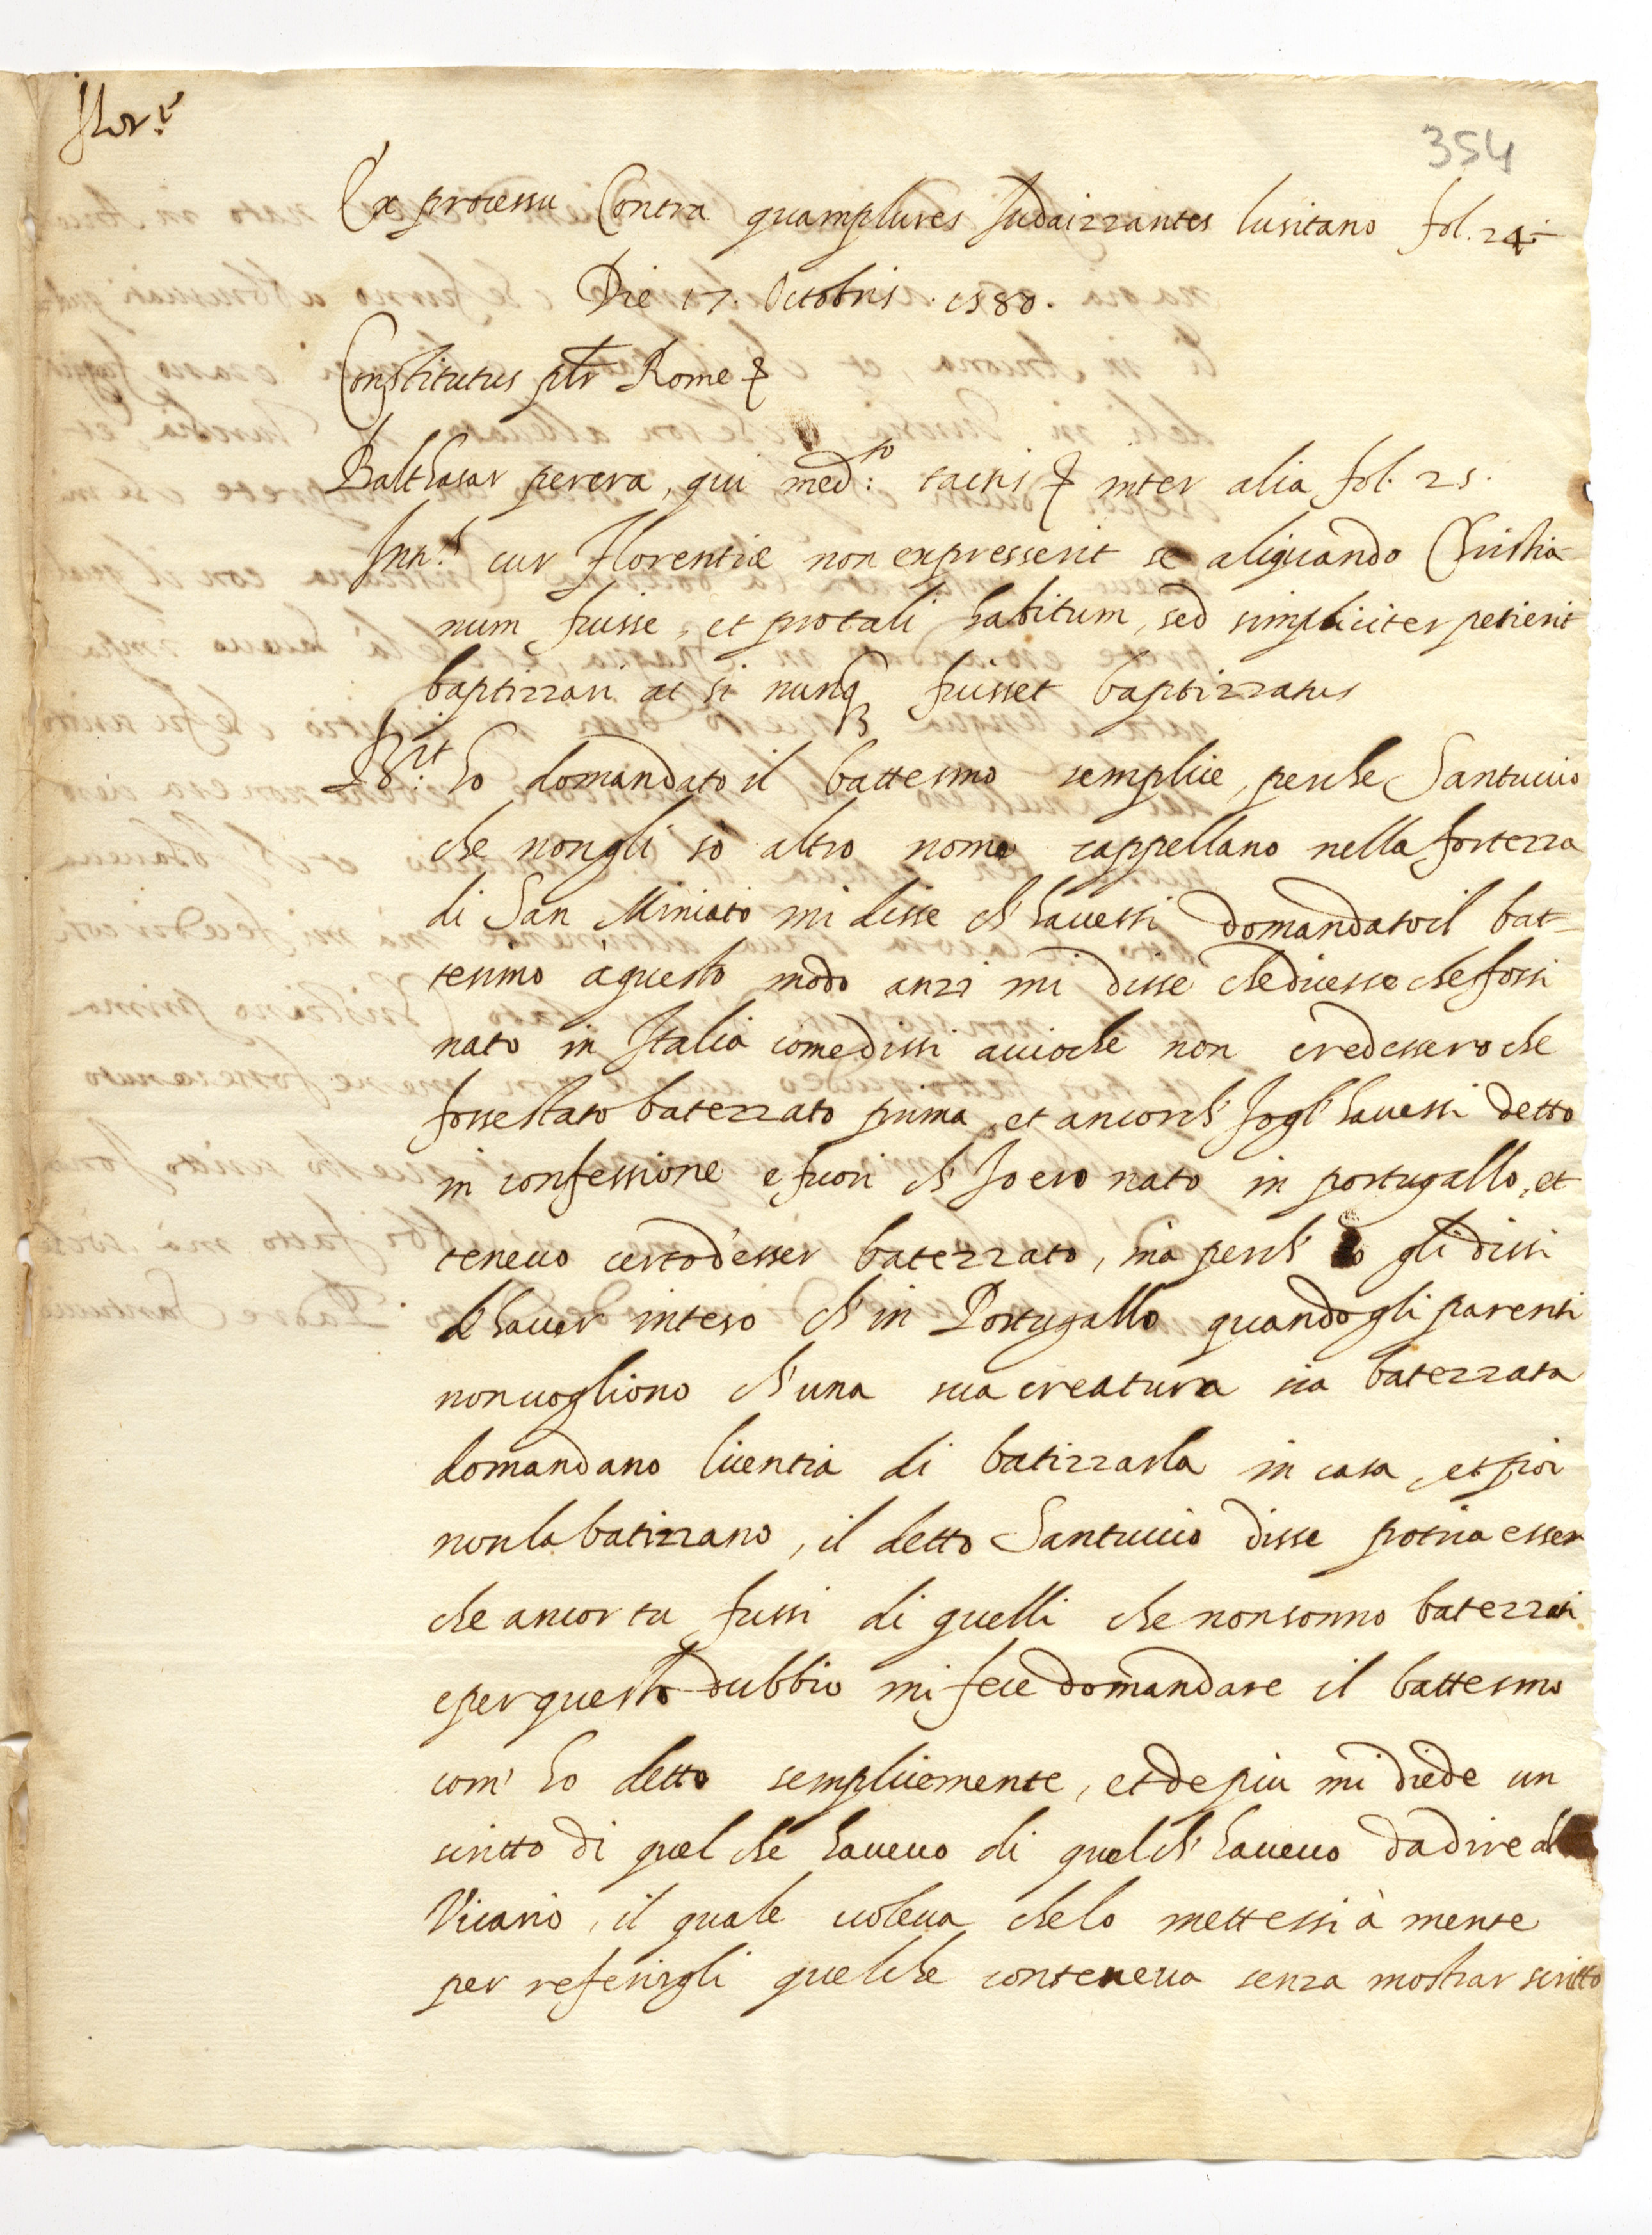 flor.e
354
Ex processu Contra quamplures Judaizzantes lusitano fol. 24.
Die 17. Octobris. 1580.
Constitutus pr Rome &
Balthasar perera, qui med.to tactis & inter alia fol. 25.
Int.s cur Florentiæ non expresserit se aliquando Christia
num fuisse, et pro tali habitum, sed simpliciter petierit
baptizzari ac si nunq fuisset baptizzatus
Rit ho domandato il battesmo semplice, perche Santuccio
che non gli so altro nome cappellano nella fortezza
di San Miniato mi disse ch' havessi domandato il bat-
tesimo à questo modo anzi mi disse che dicesse che fossi
nato in Italia come dissi accioche non credessero che
fosse stato batezzato prima, et ancorch' Io gl' havessi detto
in confessione e fuori ch' Io ero nato in portugallo, et
tenevo certo d'esser batezzato, ma perch' Io gli dissi
d'haver inteso ch' in Portugallo quando gli parenti
non vogliono ch' una sua creatura sia batezzata
domandano licentia di batizzarla in casa, et poi
non la batizzano, il detto Santuccio disse potria esser
che ancor tu fussi di quelli che non sonno batezzati
e per questo dubbio mi fece domandare il battesmo
com' ho detto semplicemente, et de piu mi diede un
scritto di quel che havevo di quel ch' havevo da dire al
Vicario, il quale voleva che lo mettessi à mente
per referirgli quelche conteneva senza mostrar scritto